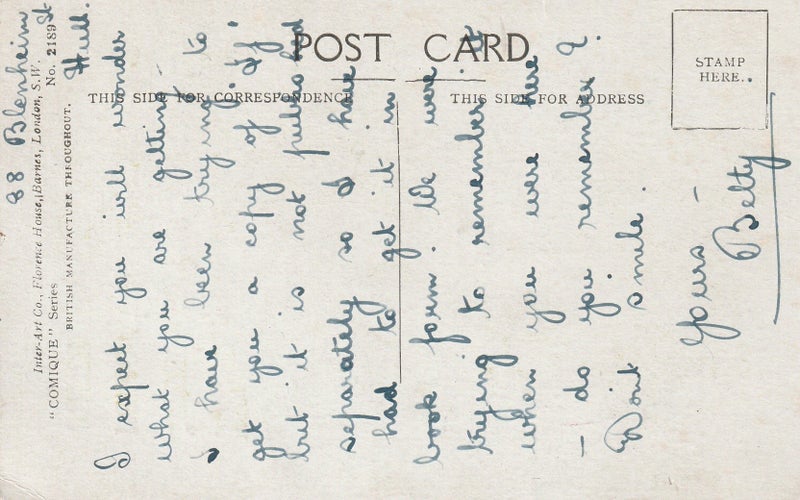 88 Blenheim St
Hull.
I expect you will wonder
what you are getting -
I have been trying to
get you a copy of "If"
but it is not published
separately so I have
had to get it in
book form. We were
trying to remember it
when you were here
- do you remember?
Don't smile.
Yours -
Betty
POST CARD
THIS SIDE FOR CORRESPONDENCE
THIS SIDE FOR ADDRESS
STAMP
HERE.
Inter-Art Co., Florence House, Barnes, London, S.W.
"COMIQUE" Series No. 2189
BRITISH MANUFACTURE THROUGHOUT.